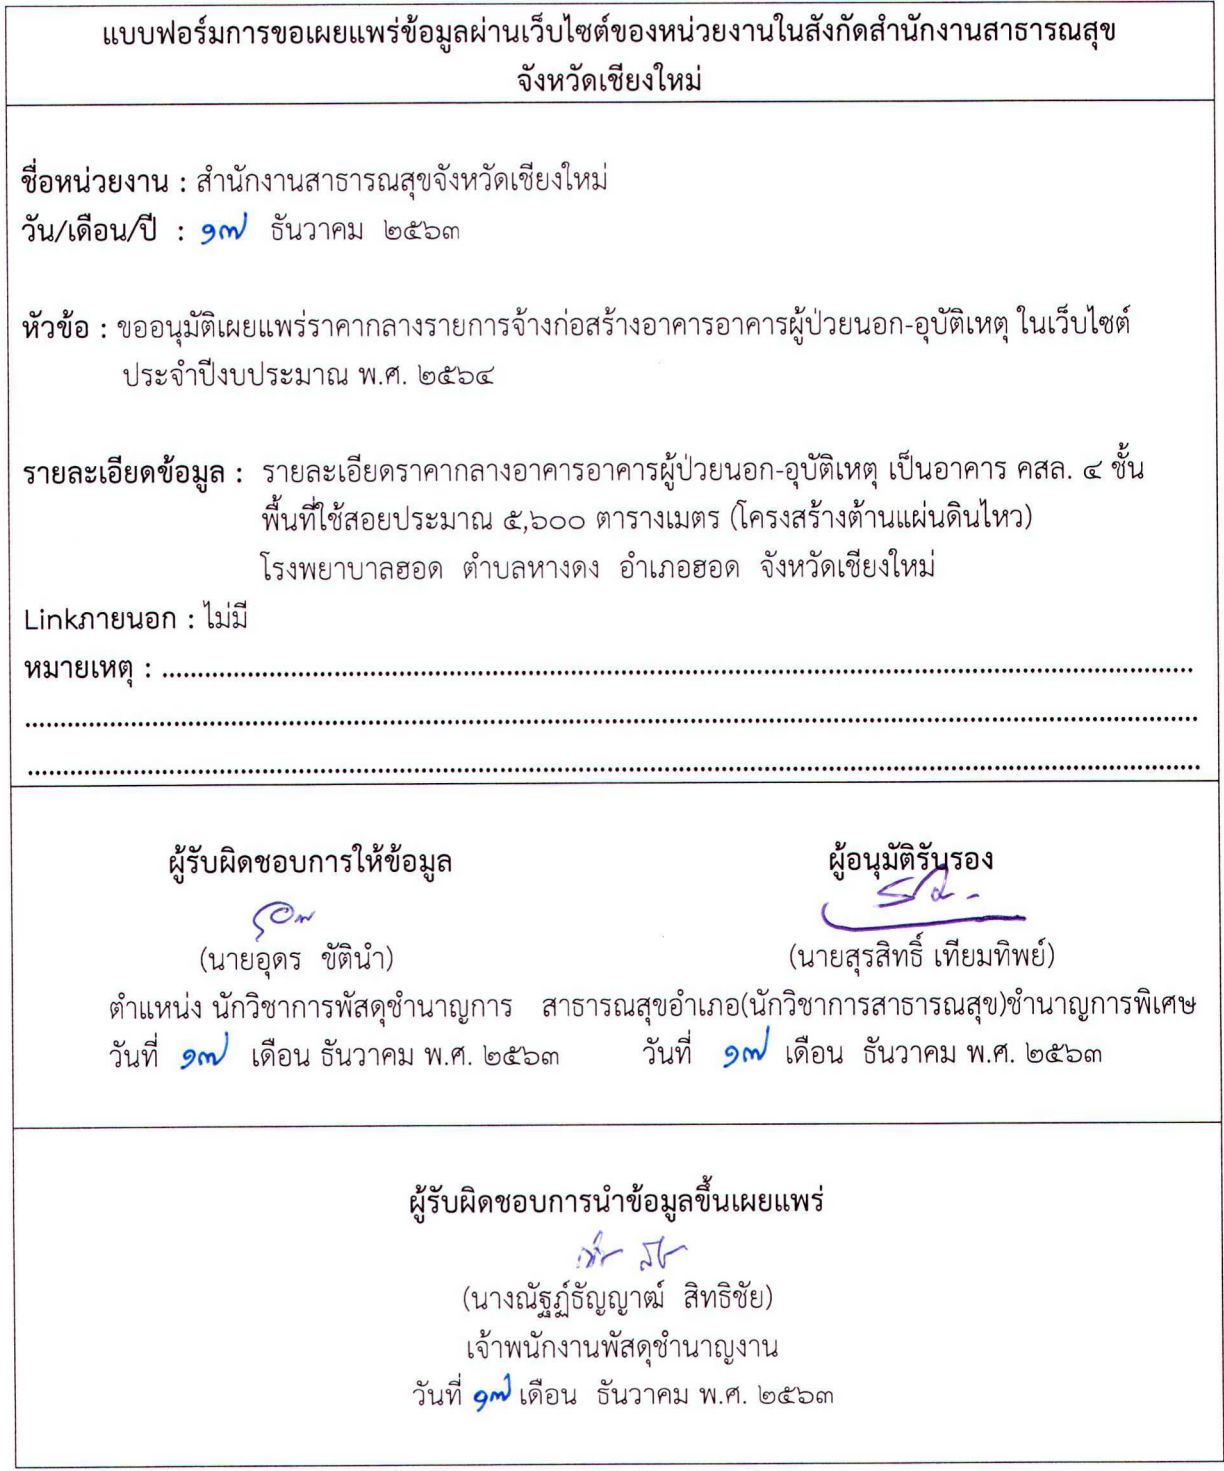 แบบฟอร์มการขอเผยแพร่ข้อมูลผ่านเว็บไซต์ของหน่วยงานในสังกัดสำนักงานสาธารณสุข
จังหวัดเชียงใหม่
ชื่อหน่วยงาน : สำนักงานสาธารณสุขจังหวัดเชียงใหม่
วัน/เดือน/ปี : ๑๗ ธันวาคม ๒๕๖๓
หัวข้อ : ขออนุมัติเผยแพร่ราคากลางรายการจ้างก่อสร้างอาคารอาคารผู้ป่วยนอก-อุบัติเหตุ ในเว็บไซต์
ประจำปีงบประมาณ พ.ศ. ๒๕๖๔
รายละเอียดข้อมูล : รายละเอียดราคากลางอาคารอาคารผู้ป่วยนอก-อุบัติเหตุ เป็นอาคาร คสล. ๔ ชั้น
พื้นที่ใช้สอยประมาณ ๕,๖๐๐ ตารางเมตร (โครงสร้างต้านแผ่นดินไหว)
โรงพยาบาลฮอด ตำบลหางดง อำเภอฮอด จังหวัดเชียงใหม่
Linkภายนอก : ไม่มี
หมายเหตุ : ........................................................................
........................................................................
........................................................................
ผู้รับผิดชอบการให้ข้อมูล ผู้อนุมัติรับรอง
(นายอุดร ขัตินำ) (นายสุรสิทธิ์ เทียมทิพย์)
ตำแหน่ง นักวิชาการพัสดุชำนาญการ สาธารณสุขอำเภอ(นักวิชาการสาธารณสุข)ชำนาญการพิเศษ
วันที่ ๑๗ เดือน ธันวาคม พ.ศ. ๒๕๖๓ วันที่ ๑๗ เดือน ธันวาคม พ.ศ. ๒๕๖๓
ผู้รับผิดชอบการนำข้อมูลขึ้นเผยแพร่
(นางณัฐฏ์ธัญญาฒ์ สิทธิชัย)
เจ้าพนักงานพัสดุชำนาญงาน
วันที่ ๑๗ เดือน ธันวาคม พ.ศ. ๒๕๖๓